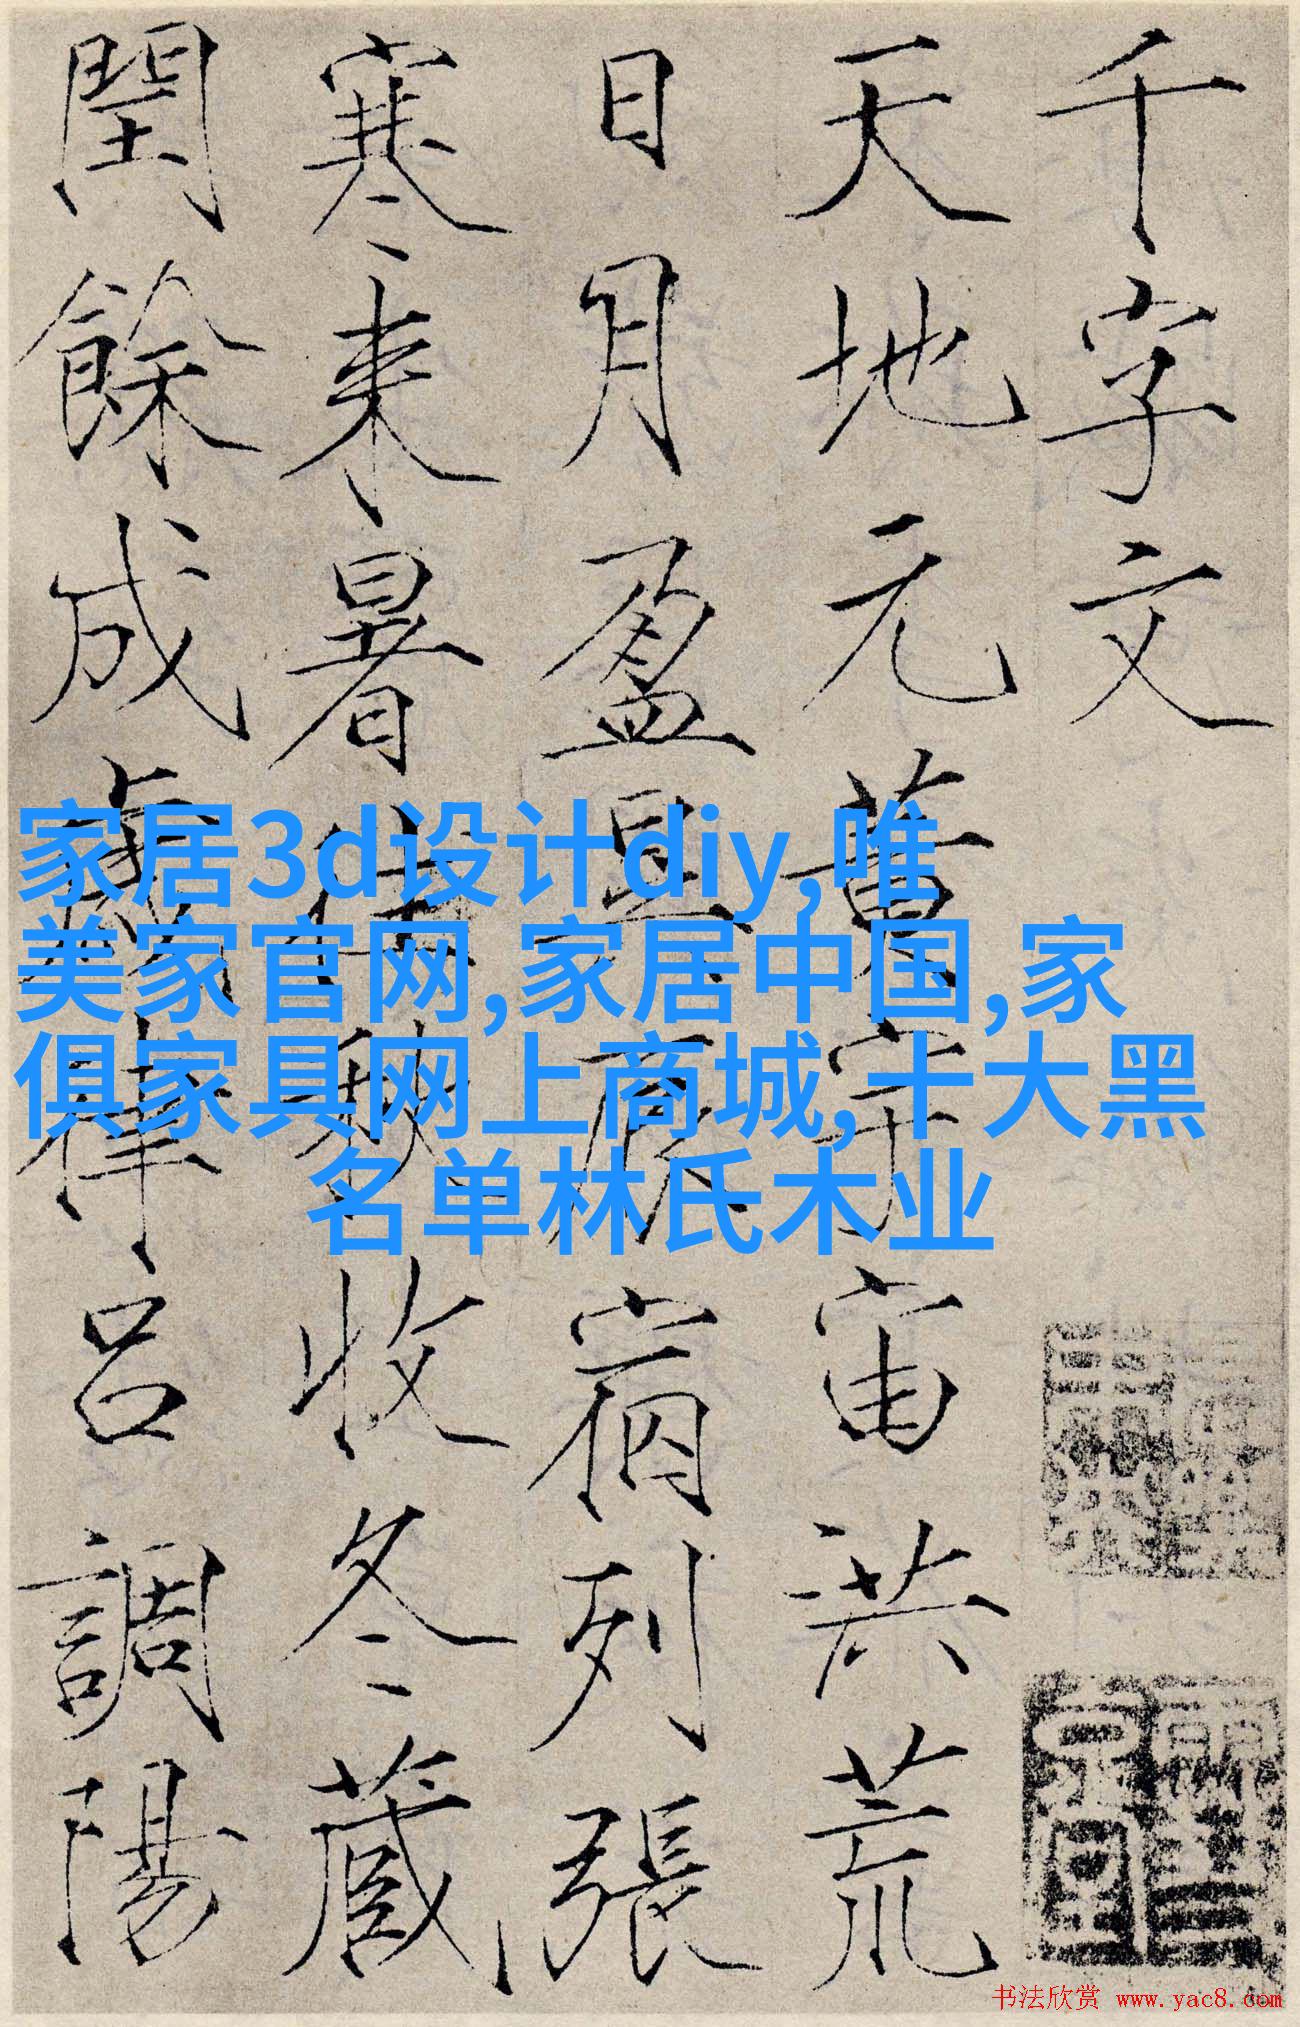 千字文
天地元黄宇宙洪荒
日月盈昃辰宿列張
寒来暑往秋收冬藏
閏餘成歲律吕調陽
家居3d设计diy,唯
美家官网,家居中国,家
俱家具网上商城,十大黑
名单林氏木业
书法欣赏 www.yac8.com